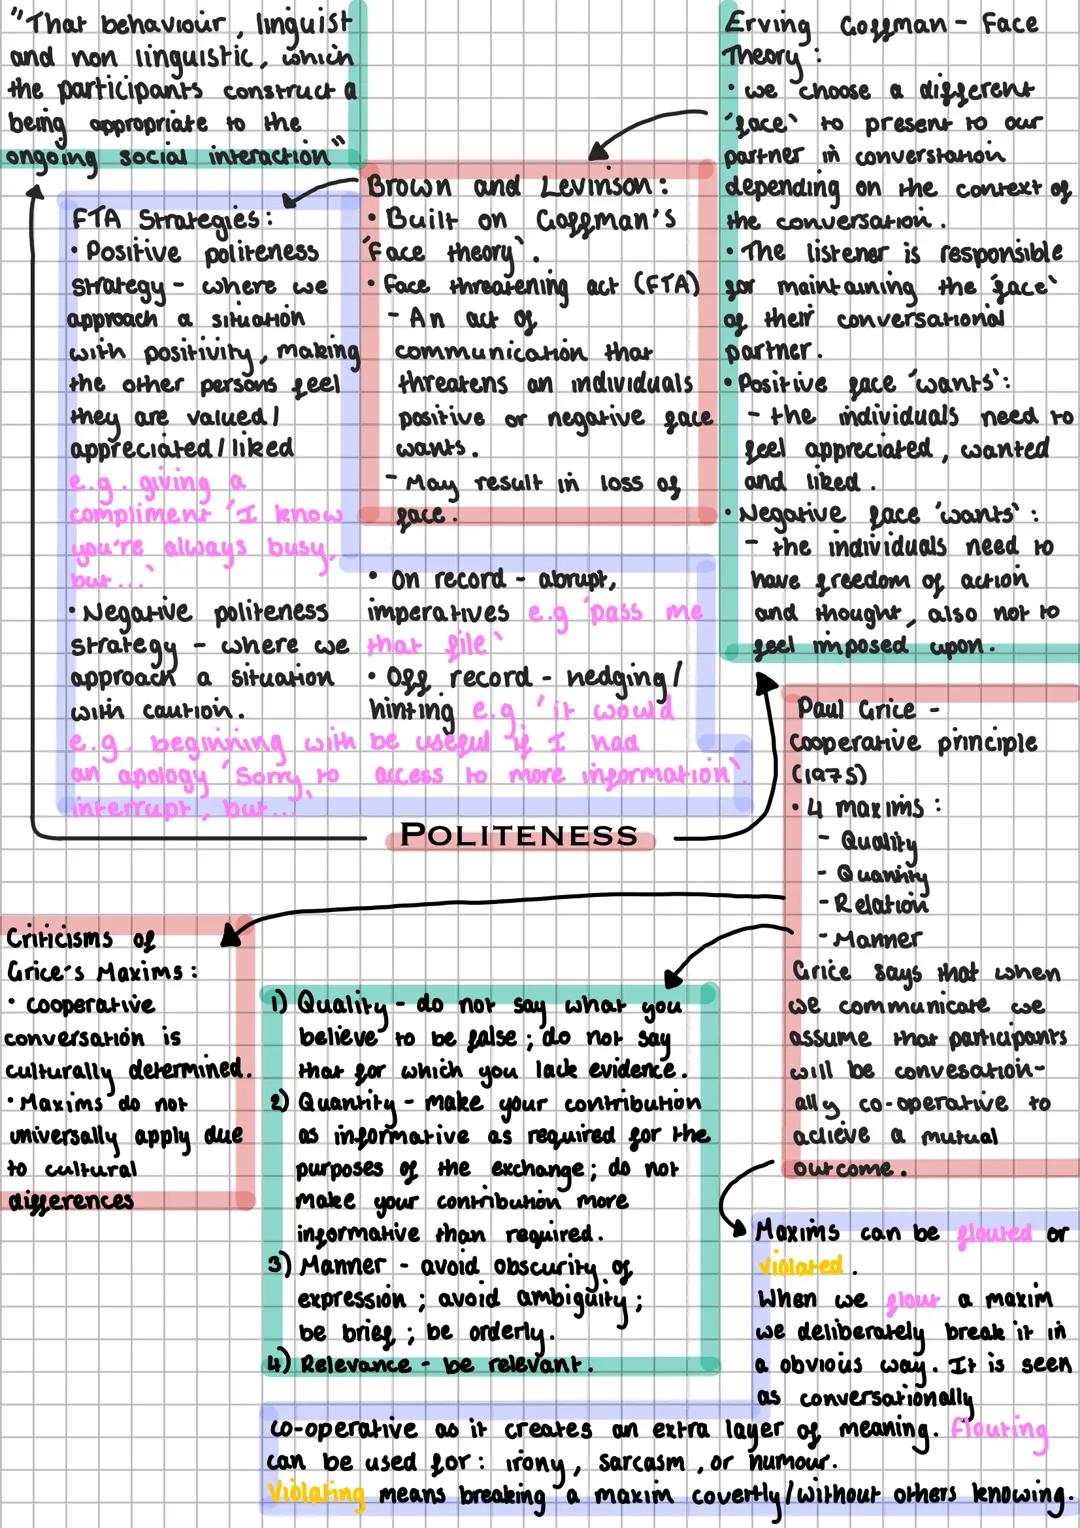 "That behaviour, linguist
and non linguistic, which
the participants construct a
being appropriate to the
ongoing social interaction"
Erving Goffman - Face
Theory:
• we choose a different
'face' to present to our
partner in converstation
depending on the context of
the conversation.
• The listener is responsible
for maintaining the 'face'
of their conversational
partner.
• Positive face 'wants':
- the individuals need to
feel appreciated, wanted
and liked.
• Negative face 'wants':
- the individuals need to
have freedom of action
and thought, also not to
feel imposed upon.
Brown and Levinson:
• Built on Goffman's
'Face theory'.
• Face threatening act (FTA)
- An act of
communication that
threatens an individuals
positive or negative face
wants.
- May result in loss of
face.
FTA Strategies:
• Positive politeness
strategy - where we
approach a situation
with positivity, making
the other persons feel
they are valued/
appreciated/liked
e.g. giving a
compliment 'I know
you're always busy,
but...'
• Negative politeness
strategy - where we
approach a situation
with caution.
e.g. beginning with
an apology 'Sorry to
interrupt, but...'
• On record - abrupt,
imperatives e.g 'pass me
that file'
• Off record - hedging/
hinting e.g. 'it would
be useful if I had
access to more information'.
POLITENESS
Paul Grice -
Cooperative principle
(1975)
• 4 maxims:
- Quality
- Quantity
- Relation
- Manner
Grice says that when
we communicate we
assume that participants
will be convesation-
ally co-operative to
achieve a mutual
outcome.
Criticisms of
Grice's Maxims:
• cooperative
conversation is
culturally determined.
• Maxims do not
universally apply due
to cultural
differences
1) Quality - do not say what you
believe to be false; do not say
that for which you lack evidence.
2) Quantity - make your contribution
as informative as required for the
purposes of the exchange; do not
make your contribution more
informative than required.
3) Manner - avoid obscurity of
expression; avoid ambiguity;
be brief; be orderly.
4) Relevance - be relevant.
Maxims can be flouted or
violated.
When we flout a maxim
we deliberately break it in
a obvious way. It is seen
as conversationally
co-operative as it creates an extra layer of meaning. Flouting
can be used for: irony, sarcasm, or humour.
Violating means breaking a maxim covertly/without others knowing.